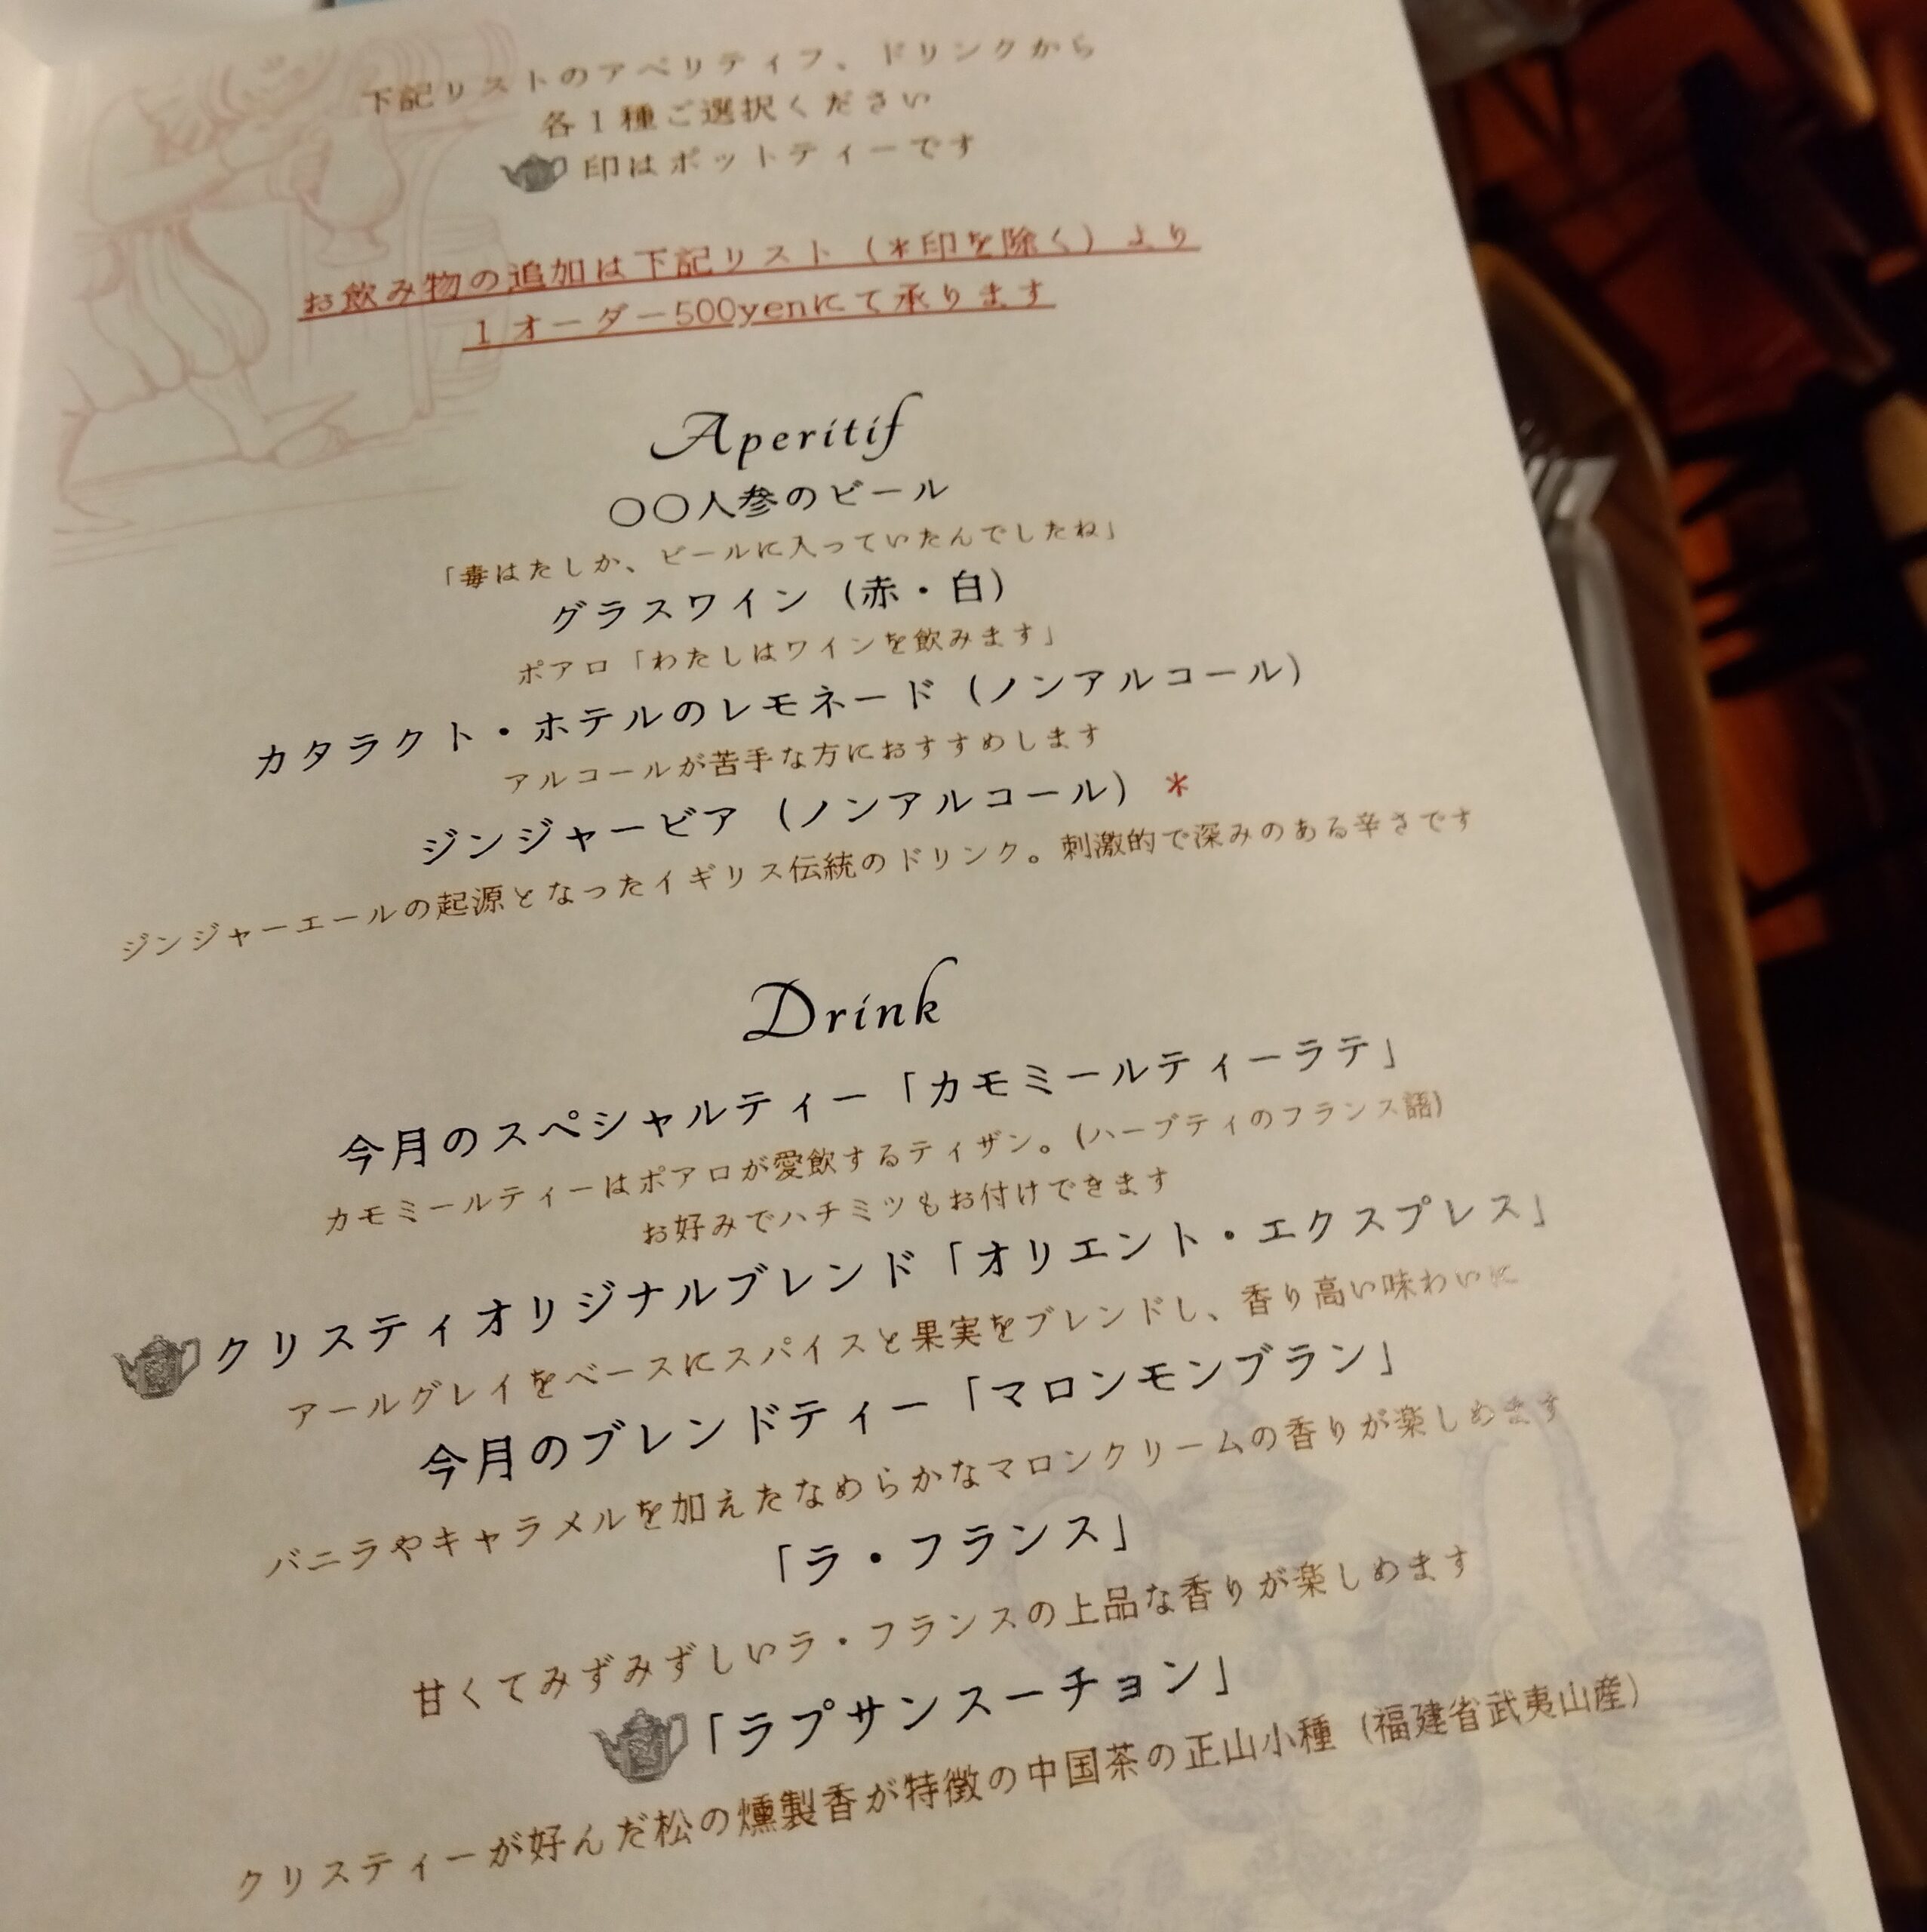 下記リストのアペリティフ、ドリンクから
各1種ご選択ください
印はポットティーです
お飲み物の追加は下記リスト（*印を除く）より
1オーダー500yenにて承ります
Aperitif
〇〇人参のビール
「毒はたしか、ビールに入っていたんでしたね」
グラスワイン（赤・白）
ポアロ「わたしはワインを飲みます」
カタラクト・ホテルのレモネード（ノンアルコール）
アルコールが苦手な方におすすめします
ジンジャービア（ノンアルコール）*
ジンジャーエールの起源となったイギリス伝統のドリンク。刺激的で深みのある辛さです
Drink
今月のスペシャルティー「カモミールティーラテ」
カモミールティーはポアロが愛飲するティザン。(ハーブティのフランス語)
お好みでハチミツもお付けできます
クリスティオリジナルブレンド「オリエント・エクスプレス」
アールグレイをベースにスパイスと果実をブレンドし、香り高い味わいに
今月のブレンドティー「マロンモンブラン」
バニラやキャラメルを加えたなめらかなマロンクリームの香りが楽しめます
「ラ・フランス」
甘くてみずみずしいラ・フランスの上品な香りが楽しめます
「ラプサンスーチョン」
クリスティーが好んだ松の燻製香が特徴の中国茶の正山小種（福建省武夷山産）